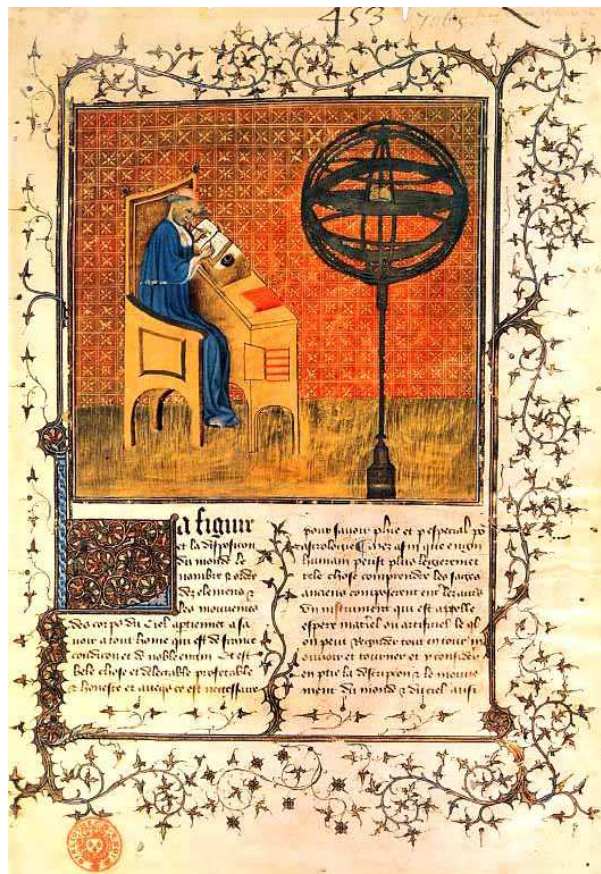 453
a figure
et la disposicion
du monde le
nombre et ordre
des elemens et
les mouvemens
des corps du ciel aptienent a sa
voir a tout home qui est de franche
condicon et de noble engin Et est
bele chose et delectable profetable
et honeste et avecq ce est necessaire
pour savoir et p especial po
astrologie afin que engin
humain peust plus legierement
tele chose comprendre les sages
anciens composerent entre les autres
un instrument qui est appelle
espere materiel ou artificiel
on peut regarder tout entour
mouvoir et tourner et
en ptie la description et le mouve
ment du monde et du ciel aussi